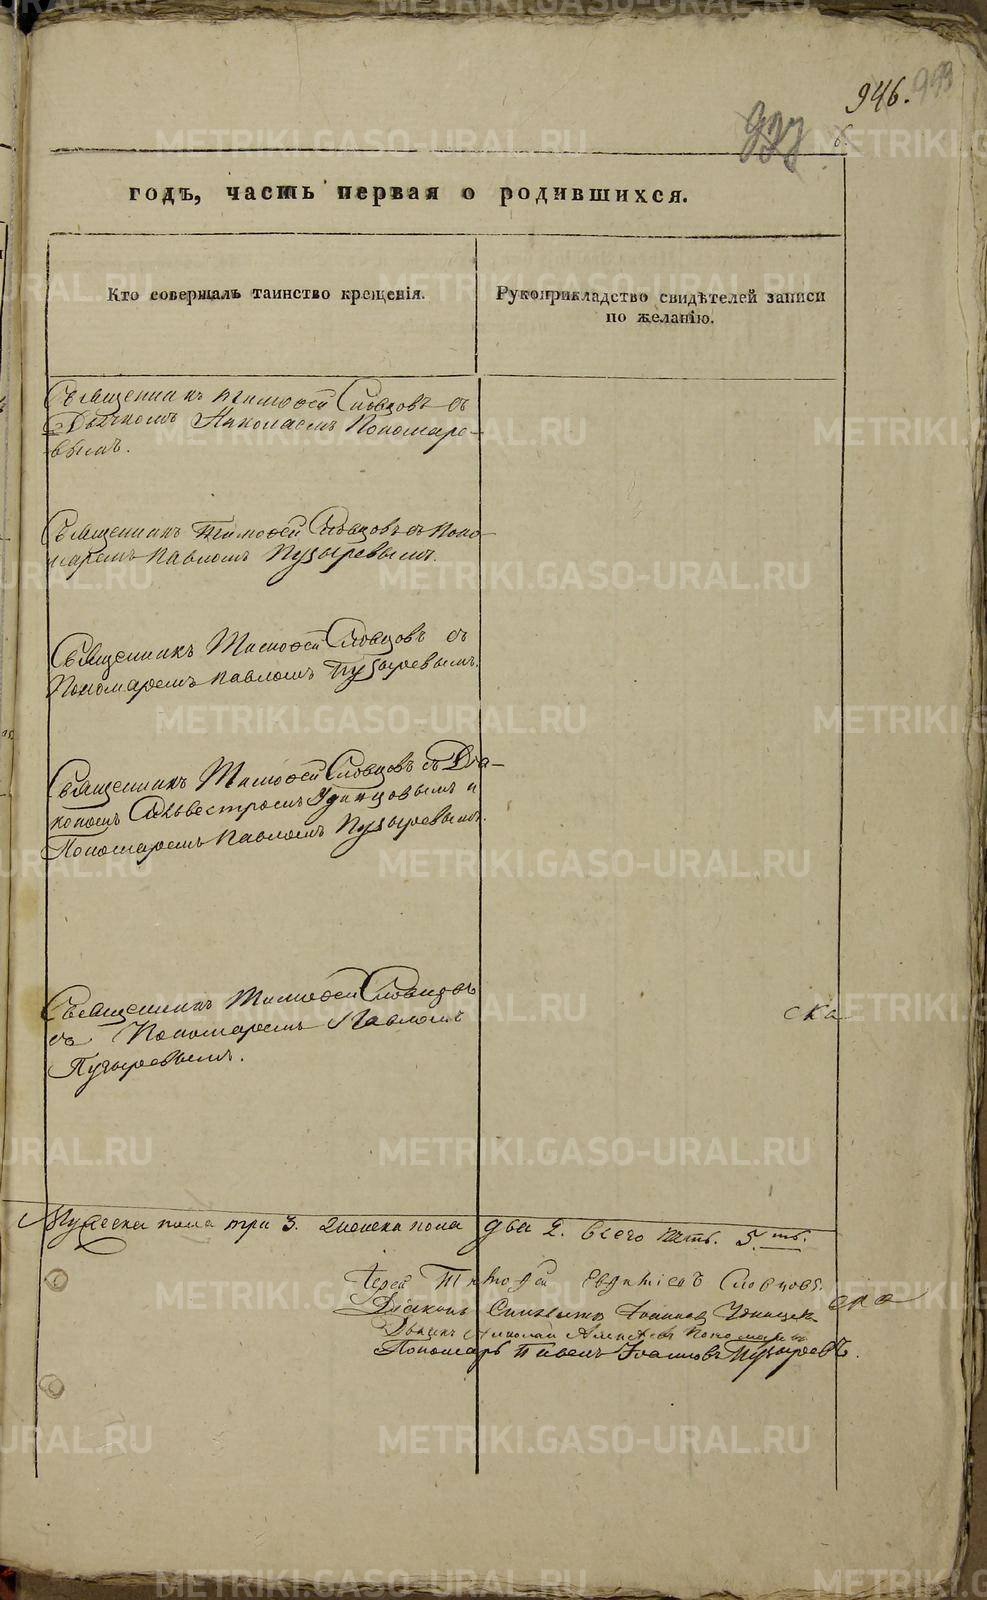 946.
годъ, часть первая о родившихся.
Кто совершалъ таинство крещенія.
Рукоприкладство свидѣтелей записи
по желанію.
Священникъ Тимофей Словцовъ съ
Дьячкомъ Николаемъ Пономаре-
вымъ.
Священникъ Тимофей Словцовъ съ Поно-
маремъ Павломъ Пузыревымъ.
Священникъ Тимофей Словцовъ съ
Пономаремъ Павломъ Пузыревымъ.
Священникъ Тимофей Словцовъ съ Діа-
кономъ Сильвестромъ Удинцовымъ и
Пономаремъ Павломъ Пузыревымъ.
Священникъ Тимофей Словцовъ
съ Пономаремъ Павломъ
Пузыревымъ.
ска
Мужеска пола три 3. Женска пола два 2. всего пять. 5.ть.
Іерей Тимофей Словцовъ.
Діаконъ Іоанновъ
Дьячекъ Николай Алексеевъ Пономаревъ
Пономарь Павелъ Іоанновъ Пузыревъ.
METRIKI.GASO-URAL.RU